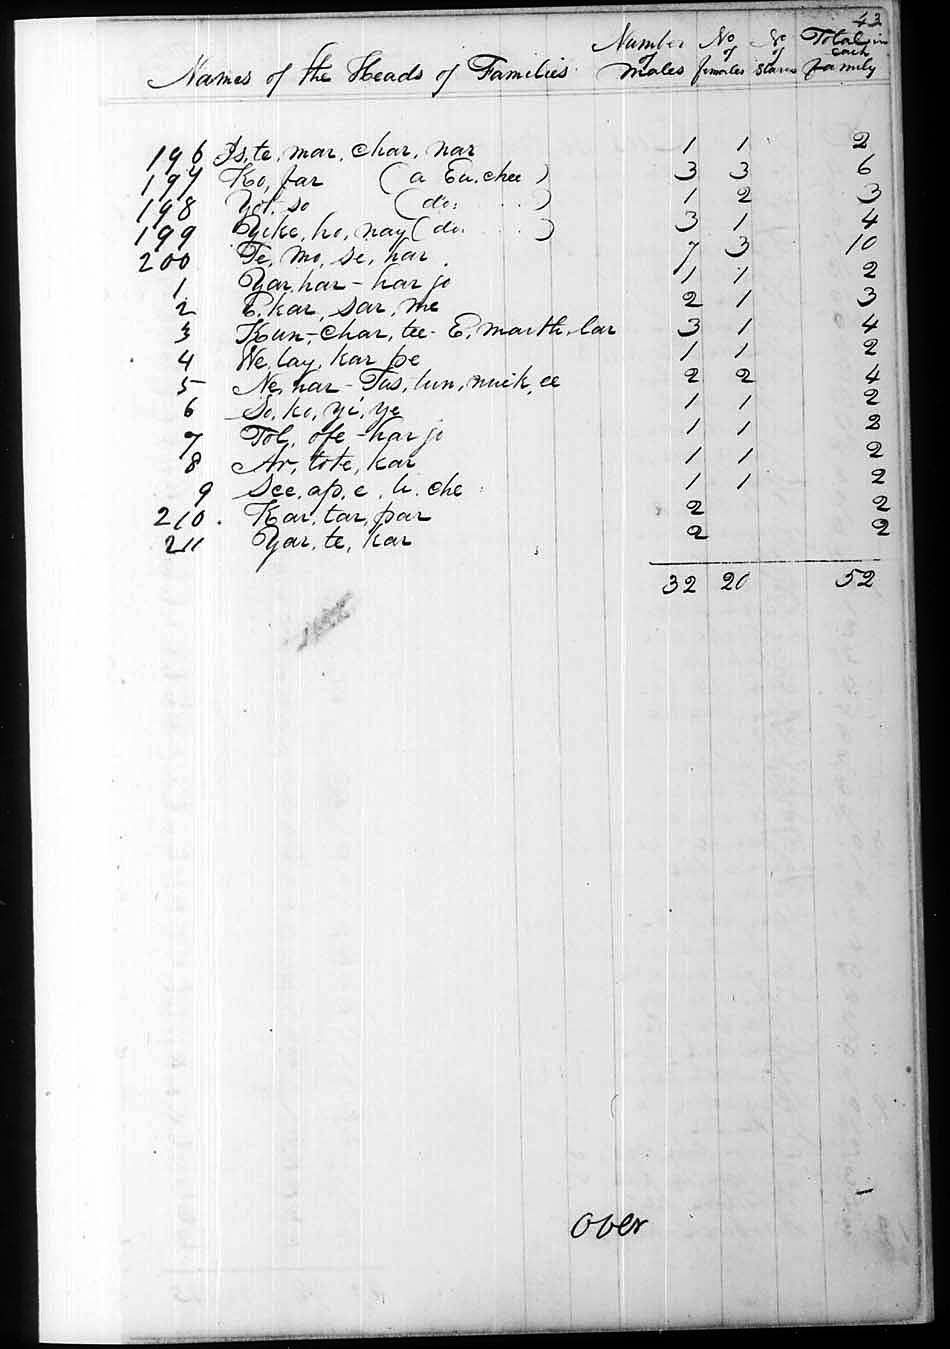 43
Names of the Heads of Families Number of Males No of females No of slaves Total in each family
196 Is, te, mar, char, nar 1 1 2
197 Ko, far (a Eu. chee) 3 3 6
198 Yol, so (do: . . .) 1 2 3
199 Yike, ho, nay (do. . . .) 3 1 4
200 Te, mo, se, har 7 3 10
1 Yar, har - har jo 1 1 2
2 E, kar, sar, me 2 1 3
3 Kun, - char, tee - E, marth, lar 3 1 4
4 We, lay, kar pe 1 1 2
5 Ne, har - Tus, tun, nuck, ee 2 2 4
6 So, ko, yi, ye 1 1 2
7 Tol, ofe, - har jo 1 1 2
8 Ar, tote, kar 1 1 2
9 See, ap, e, li, che 1 1 2
210. Kar, tar, par 2 2
211 Yar, te, kar 2 2
32 20 52
over